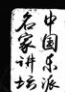 中国乐派
名家讲坛